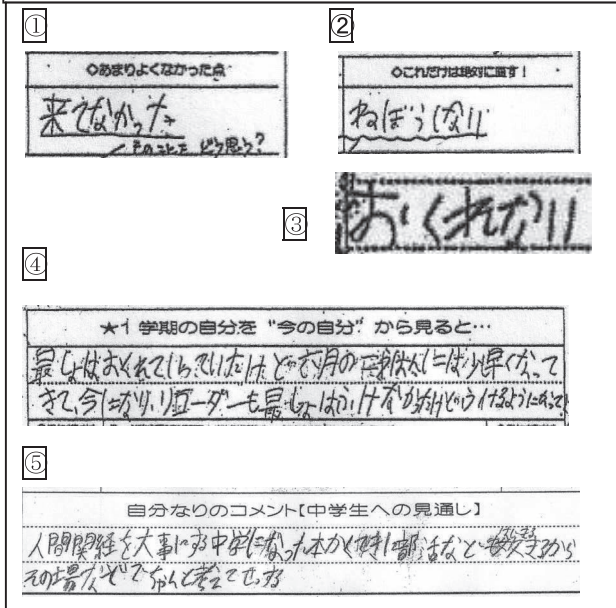 ①
②
◇あまりよくなかった点
来てなかった
そのことを どう思う?
◇これだけは絶対に直す!
ねぼうしない
③
おくれない
④
★1学期の自分を“今の自分”から見ると…
最しょはおくれて いたけど 月の には少早くなって
きて、今になり、リーダーも最しょは けど うけるようになって
⑤
自分なりのコメント【中学生への見通し】
人間関経を大事にする中学になったら本かくてきに部活など から
その場などでちゃんと考えてせっする